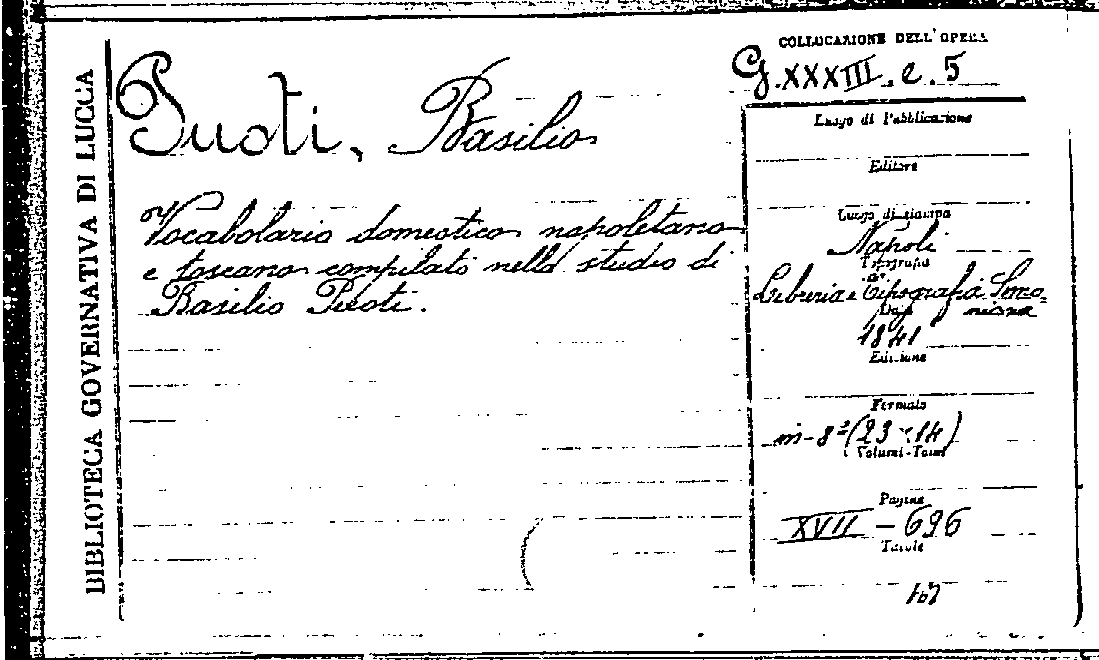 BIBLIOTECA GOVERNATIVA DI LUCCA
Puoti, Basilio
Vocabolario domestico napoletano
e toscano compilato nello studio di
Basilio Puoti.
COLLOCAZIONE DELL'OPERA
G.XXXIII.e.5
Luogo di Pubblicazione
Editore
Luogo di stampa
Napoli
Tipografia
Libreria e Tipografia Simo-
niana
Data
1841
Edizione
Formato
in-8° (23×14)
Volumi-Tomi
Pagine
XVII - 696
Tavole